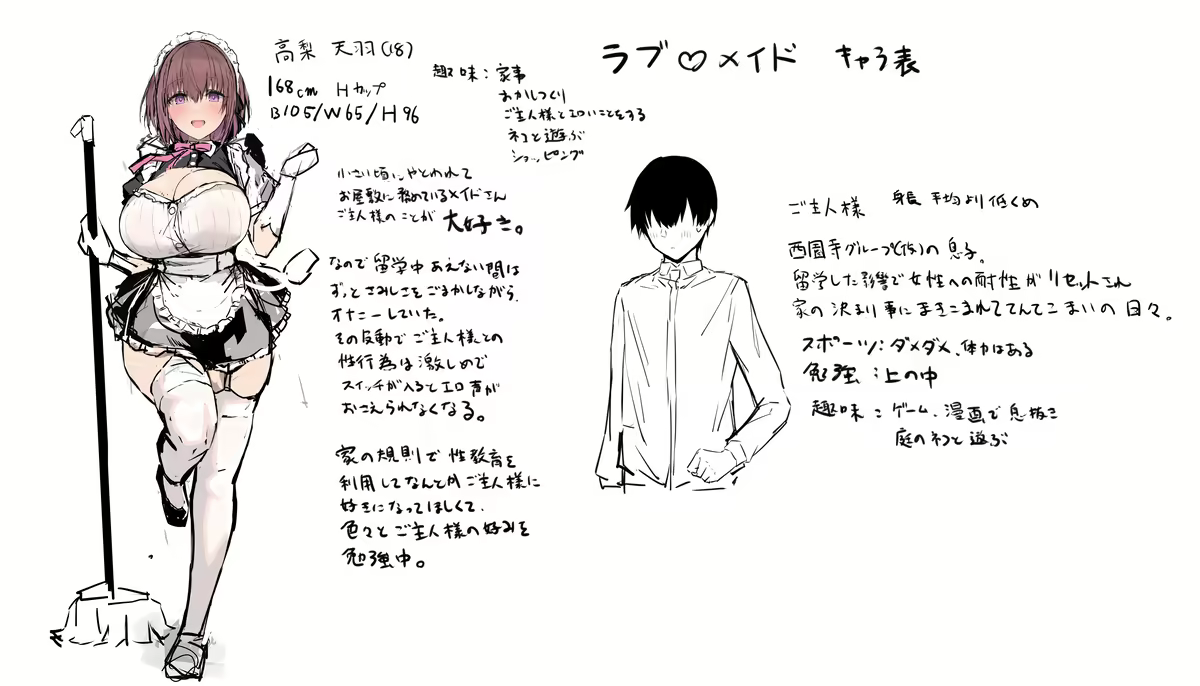 ラブ♡メイド キャラ表
高梨 天羽(18)
168cm Hカップ
B105/W65/H96
趣味:家事
おかしつくり
ご主人様とエロいことをする
ネコと遊ぶ
ショッピング
小さい頃にやとわれて
お屋敷に務めているメイドさん
ご主人様のことが大好き。
なので留学中あえない間は
ずっとさみしさをごまかしながら
オナニーしていた。
その反動でご主人様との
性行為は激しめで
スイッチが入るとエロ声が
おさえられなくなる。
家の規則で性教育を
利用してなんとかご主人様に
好きになってほしくて、
色々とご主人様の好みを
勉強中。
ご主人様 身長 平均より低くめ
西園寺グループ(仮)の息子。
留学した影響で女性への耐性がリセットされ
家の決まり事にまきこまれててんてこまいの日々。
スポーツ:ダメダメ、体力はある
勉強:上の中
趣味:ゲーム、漫画で息抜き
庭のネコと遊ぶ